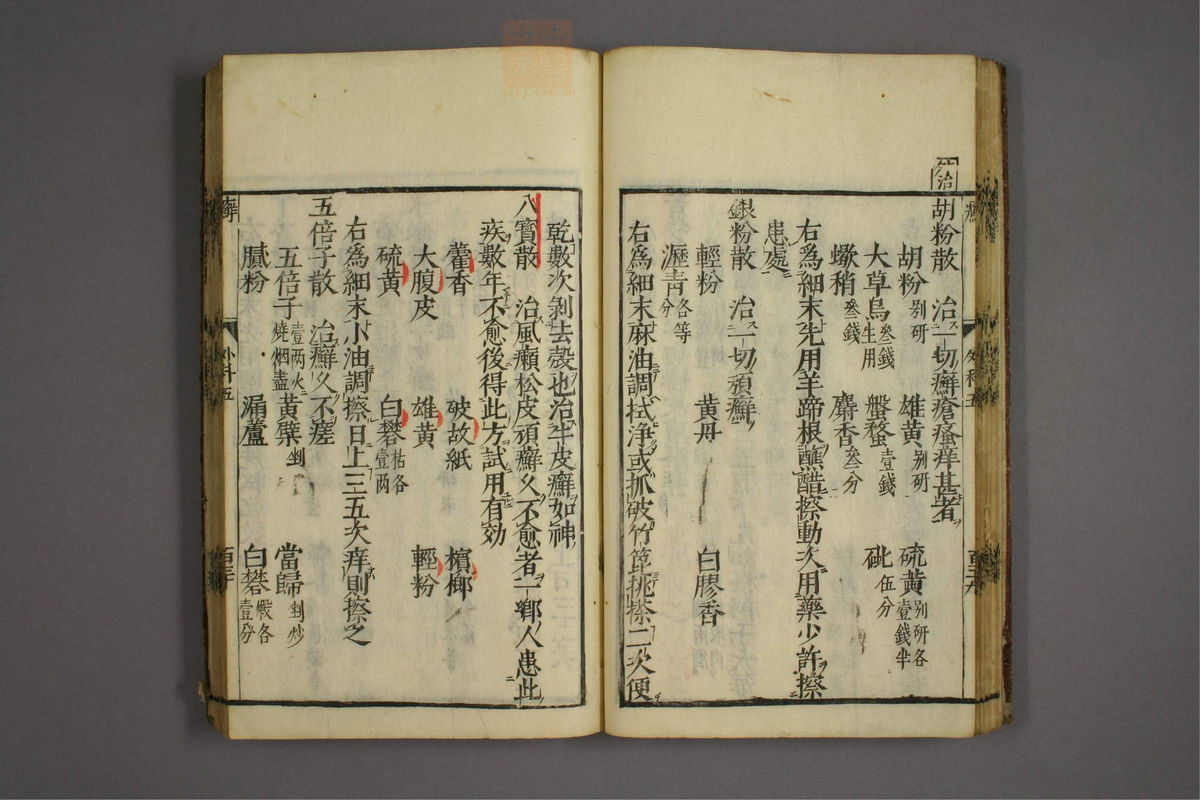 治
胡粉散 治一切癬瘡瘙痒甚者
胡粉别研 雄黄别研 硫黄别研各壹錢半
大草烏叁錢生用 盤蝥壹錢 砒伍分
蠍稍叁錢 麝香叁分
右爲細末先用羊蹄根蘸醋擦動次用藥少許擦
患處
銀粉散 治一切頑癬
輕粉 黄丹 白膠香
瀝青各等分
右爲細末麻油調拭浄或抓破竹箆挑搽二次便
乾數次剥去殼也治牛皮癬如神
八寳散 治風癩松皮頑癬久不愈者一鄉人患此
疾數年不愈後得此方試用有効
藿香 破故紙 檳榔
大腹皮 雄黄 輕粉
硫黄 白礬枯各壹两
右爲細末小油調擦日上三五次痒則擦之
五倍子散 治癬久不瘥
五倍子壹两火燒烟盡 黄蘗剉 當歸剉炒
膩粉 漏蘆 白礬煅各壹分
癬 外科五